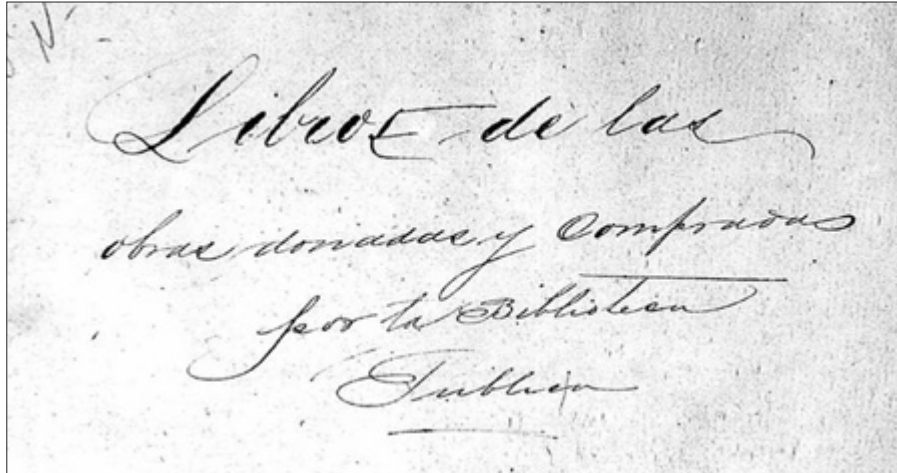 Libro de las
obras donadas y Compradas
por la Biblioteca
Publica